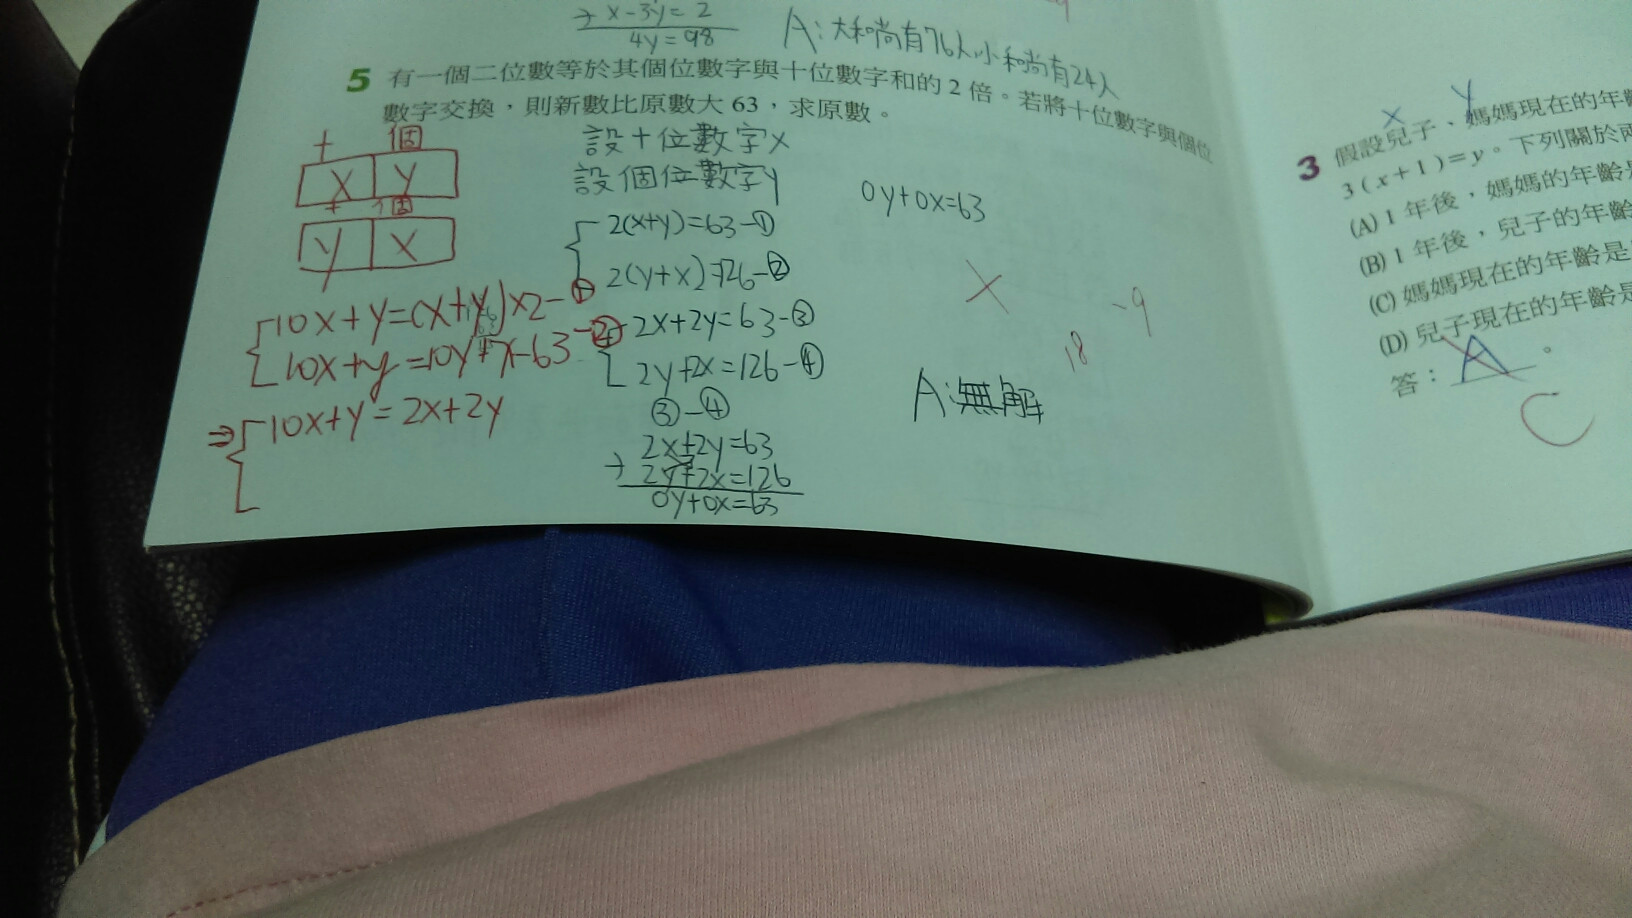 + x-3y=2
4y=98
A:大和尚有76人小和尚有24人
5 有一個二位數等於其個位數字與十位數字和的2倍。若將十位數字與個位
數字交換,則新數比原數大63,求原數。
十 個
x y
十 個
y x
10x+y=(x+y)×2-①
10x+y=10y+x-63-②
⇒ 10x+y=2x+2y
設十位數字x
設個位數字y
2(x+y)=63-①
2(y+x)=126-②
2x+2y=63-③
2y+2x=126-④
③-④
2x+2y=63
+ 2y+2x=126
0y+0x=63
0y+0x=63
A:無解
18
-9
x y
3 假設兒子、媽媽現在的年齡
3(x+1)=y。下列關於兩
(A) 1年後,媽媽的年齡是
(B) 1年後,兒子的年齡
(C) 媽媽現在的年齡是
(D) 兒子現在的年齡是
答:A。
C